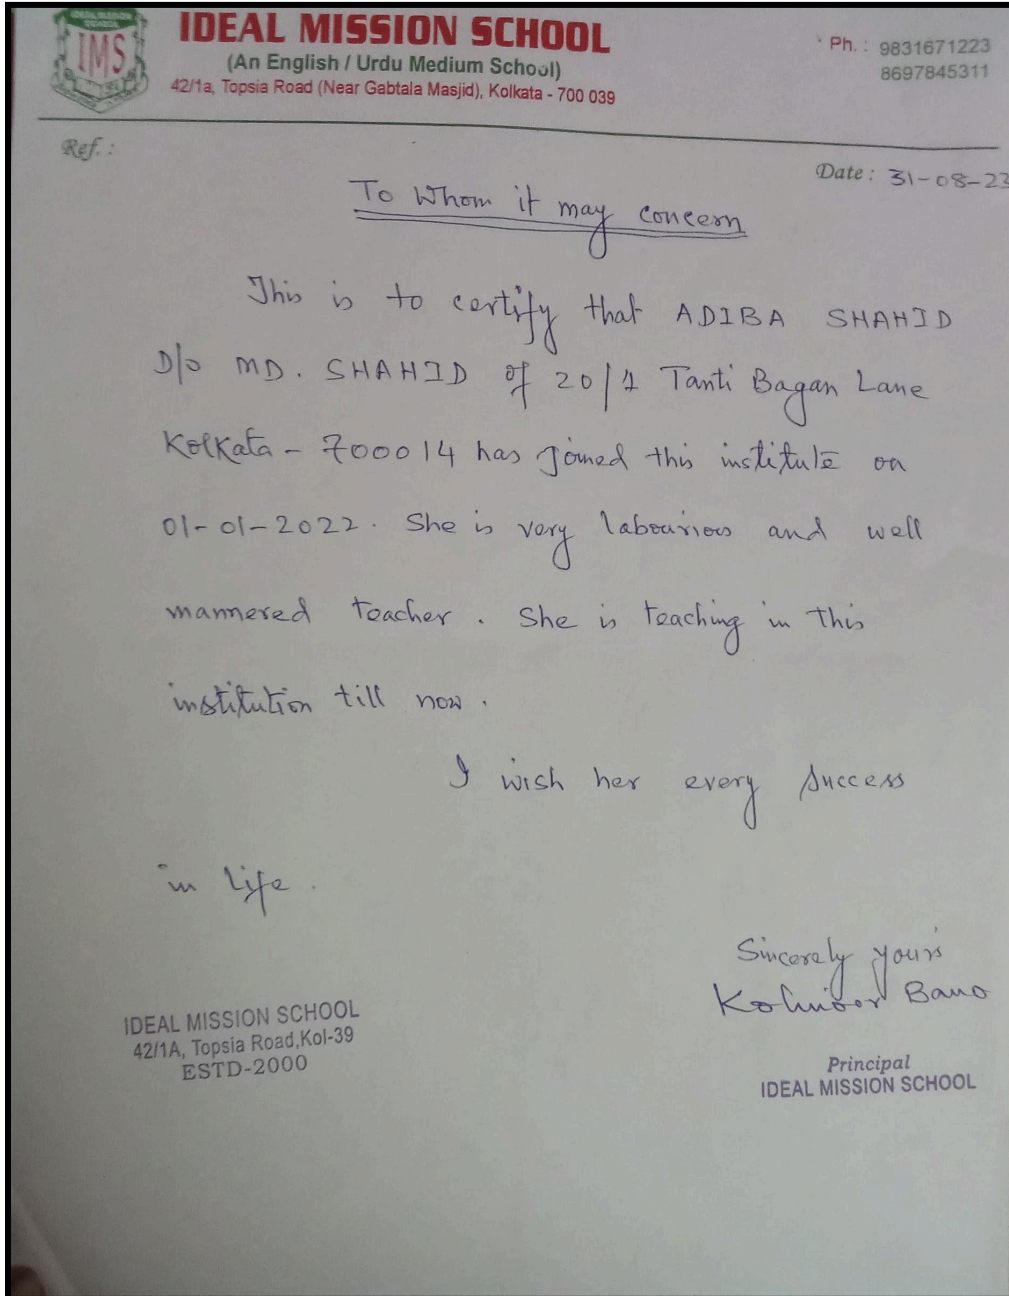 IDEAL MISSION SCHOOL
IMS
IDEAL MISSION SCHOOL
(An English / Urdu Medium School)
42/1a, Topsia Road (Near Gabtala Masjid), Kolkata - 700 039
Ph. : 9831671223
8697845311
Ref. :
Date : 31-08-23
To Whom it may concern
This is to certify that ADIBA SHAHID
D/o MD. SHAHID of 20/1 Tanti Bagan Lane
Kolkata - 700014 has Joined this institute on
01-01-2022. She is very labourious and well
mannered teacher. She is teaching in this
institution till now.
I wish her every success
in Life.
Sincerely yours
Kohinoor Bano
IDEAL MISSION SCHOOL
42/1A, Topsia Road,Kol-39
ESTD-2000
Principal
IDEAL MISSION SCHOOL